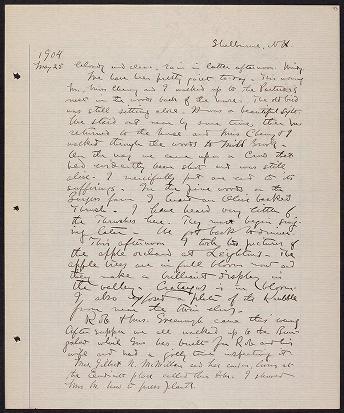 Shelburne, N.H.
1904
May 25 Cloudy and clear, rain in latter afternoon. Windy.
We have been pretty quiet to-day. This morning
Mr. Miss Cheney and I walked up to the Partridge's
nest in the woods back of the house. The old bird
was still setting close. It was a beautiful sight.
We stood not near by some time, then we
returned to the house and Miss Cheney & I
walked through the woods to Mill Brook.
On the way we came upon a Crow that
had evidently been shot and was still
alive. I mercifully put an end to its
sufferings. In the pine woods on the
farm I heard an Olive backed
Thrush. I have heard very little of
the Thrushes here. They must begin sing-
ing later. We got back to dinner.
This afternoon I took two pictures of
the apple orchard at Leighton's. The
apple trees are in full bloom now and
they make a brilliant display in
the valley. Crataegus is in bloom.
I also exposed a plate of the
from near the
Rob & Mrs. Greenough came this evening.
After supper we all walked up to the Bun-
galow which Gus has built for Rob and his
wife and had a jolly time inspecting it.
Mrs. Gilbert N. McMillan and her cousin, living at
the place called this
Mrs. M. how to press plants.